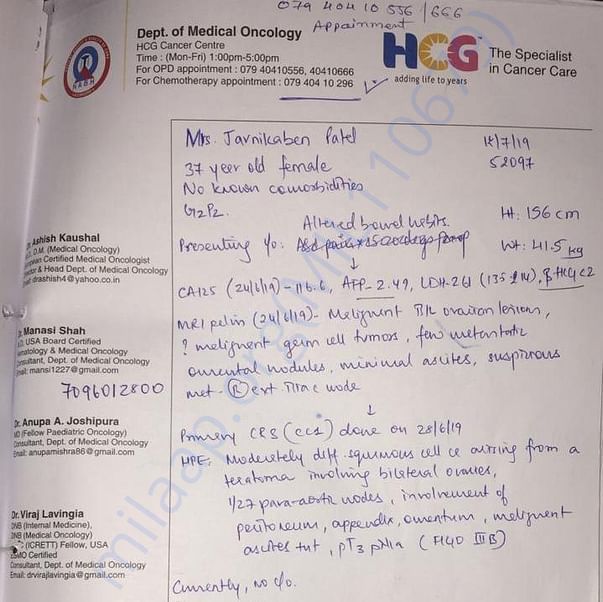 079 404 10 556/666
Appainment
Dept. of Medical Oncology
HCG Cancer Centre
Time : (Mon-Fri) 1:00pm-5:00pm
For OPD appointment : 079 40410556, 40410666
For Chemotherapy appointment : 079 404 10 296
HCG
adding life to years
The Specialist
in Cancer Care
NABH
Mrs. Jarnikaben Patel
18/7/19
37 year old female
52097
No known comorbidities
G2P2.
Altered bowel habits.
Ht: 156 cm
Presenting c/o:
Wt: 41.5 kg
CA125 (24/6/19) - 116.6, AFP - 2.49, LDH-261 (135-214), β HCG <2
MRI pelvis (24/6/19) - Malignent B/L ovarian lesions,
? malignent germ cell tumors, few metastatic
omental nodules, minimal ascites, suspicious
met - (R) ext iliac node
Primary CRS (cc) done on 28/6/19
HPE: Moderately diff. squamous cell ca arising from a
teratoma involving bilateral ovaries,
1/27 para-aortic nodes, involvement of
peritoneum, appendix, omentum, malignent
ascites, pT3 pN1a (FIGO III B)
Currently, no c/o.
Ashish Kaushal
D.M. (Medical Oncology)
Certified Medical Oncologist
& Head Dept. of Medical Oncology
drashish4@yahoo.co.in
Dr. Manasi Shah
USA Board Certified
Hematology & Medical Oncology
Consultant, Dept. of Medical Oncology
Email: mansi1227@gmail.com
7096012800
Dr. Anupa A. Joshipura
MD (Fellow Paediatric Oncology)
Consultant, Dept. of Medical Oncology
Email: anupamishra86@gmail.com
Dr. Viraj Lavingia
DNB (Internal Medicine),
DNB (Medical Oncology)
(ICRETT) Fellow, USA
ESMO Certified
Consultant, Dept. of Medical Oncology
Email: drvirajlavingia@gmail.com